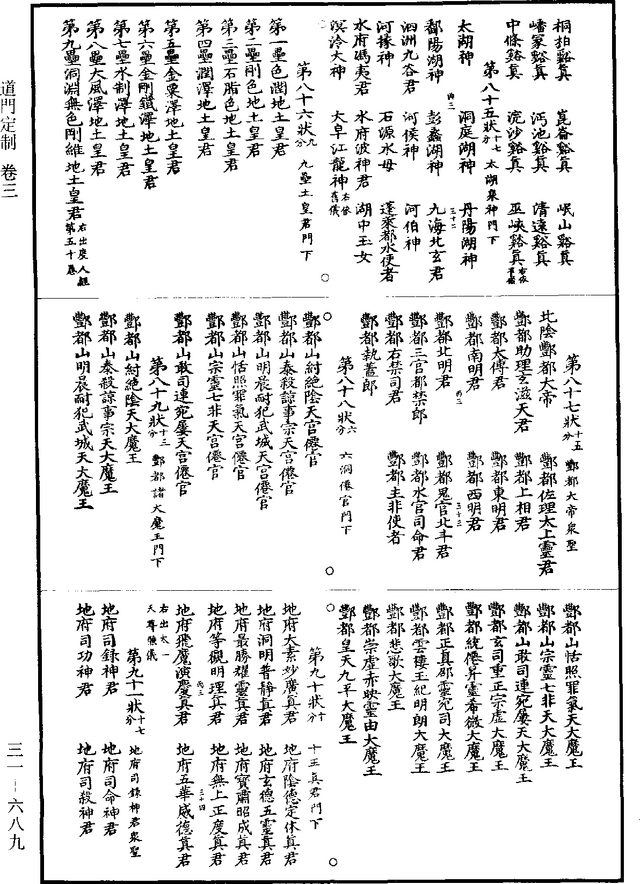 道門定制　卷三
三一－六八九
桐柏谿真　崑崙谿真　岷山谿真
嶓冢谿真　沔池谿真　清遠谿真
中條谿真　浣沙谿真　巫峽谿真
第八十五狀十七分　太湖衆神門下
太湖神　洞庭湖神　丹陽湖神
鄱陽湖神　彭蠡湖神　九海北玄君
泗洲九谷君　河侯神　河伯神
河掾神　石源水母　蓬萊都水使者
水府馮夷君　水府波神君　湖中玉女
溟泠大神　大阜江龍神右依舊儀
第八十六狀九分　九壘土皇君門下
第一壘色潤地土皇君
第二壘剛色地土皇君
第三壘石脂色地土皇君
第四壘潤澤地土皇君
第五壘金粟澤地土皇君
第六壘金剛鐵澤地土皇君
第七壘水制澤地土皇君
第八壘大風澤地土皇君
第九壘洞淵無色剛維地土皇君右出度人經第五十卷
第八十七狀十五分　酆都大帝衆聖
北陰酆都大帝　酆都佐理太上靈君
酆都助理玄滋天君　酆都上相君
酆都太傅君　酆都東明君
酆都南明君　酆都西明君
酆都北明君　酆都鬼官北斗君
酆都三官都禁郎　酆都水官司命君
酆都右禁司君　酆都主非使者
酆都執蓋郎
第八十八狀六分　六洞僊官門下
酆都山紂絕陰天宮僊官
酆都山泰殺諒事宗天宮僊官
酆都山明晨耐犯武城天宮僊官
酆都山恬照罪氣天宮僊官
酆都山宗靈七非天宮僊官
酆都山敢司連宛屢天宮僊官
第八十九狀十三分　酆都諸大魔王門下
酆都山紂絕陰天大魔王
酆都山泰殺諒事宗天大魔王
酆都山明晨耐犯武城天大魔王
酆都山恬照罪氣天大魔王
酆都山宗靈七非天大魔王
酆都山敢司連宛屢天大魔王
酆都玄司重正宗虛大魔王
酆都統倦昇靈希微大魔王
酆都正真郡靈宛司大魔王
酆都雲樓王紀明朗大魔王
酆都悲歌大魔王
酆都宗虛赤映靈由大魔王
酆都皇天九平大魔王
第九十狀十分　十王真君門下
地府太素妙廣真君　地府陰德定休真君
地府洞明普靜真君　地府玄德五靈真君
地府最勝耀靈真君　地府寶肅昭成真君
地府等觀明理真君　地府無上正度真君
地府飛魔演慶真君　地府五華威德真君
右出太一天尊懺儀
第九十一狀十七分　地府司錄神君衆聖
地府司錄神君　地府司命神君
地府司功神君　地府司殺神君